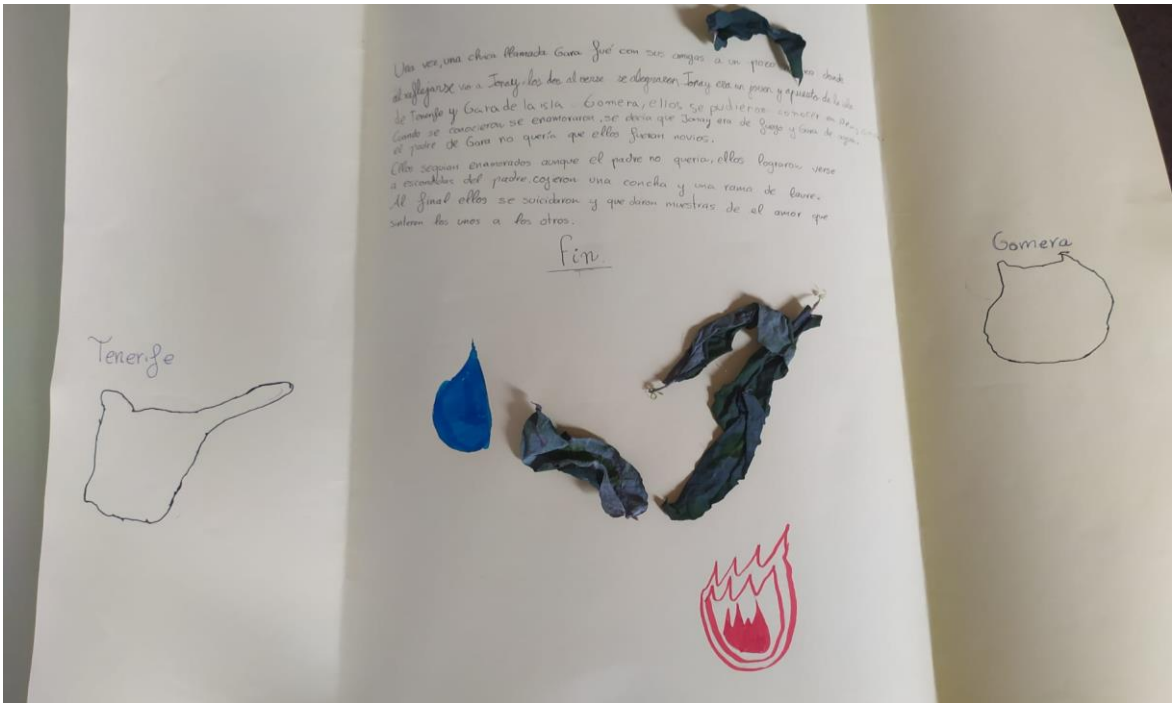 Una vez, una chica llamada Gara fué con sus amigas a un donde
al reflejarse ve a Jonay los dos al verse se alegraron, Jonay era un joven y apuesto de la isla
de Tenerife y Gara de la isla Gomera, ellos se pudieron conocer en
Cuando se conocieron se enamoraron, se decía que Jonay era de fuego y Gara de agua,
el padre de Gara no quería que ellos fueran novios.
Ellos seguían enamorados aunque el padre no quería, ellos lograron verse
a escondidas del padre, cojeron una concha y una rama de laure.
Al final ellos se suicidaron y quedaron muestras de el amor que
los unos a los otros.
Fin.
Gomera
Tenerife